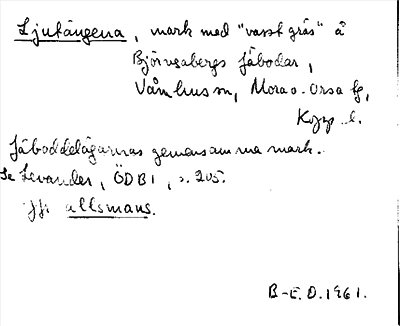 Ljutängena, mark med "vasst gräs" å
Björnsabergs fäbodar,
Våmhus sn, Mora o. Orsa tg,
Kopp. l.
Fäboddelägarnas gemensamma mark.
Se Levander, ÖDB I, s. 205.
Jfr allsmans.
B-E.O. 1961.